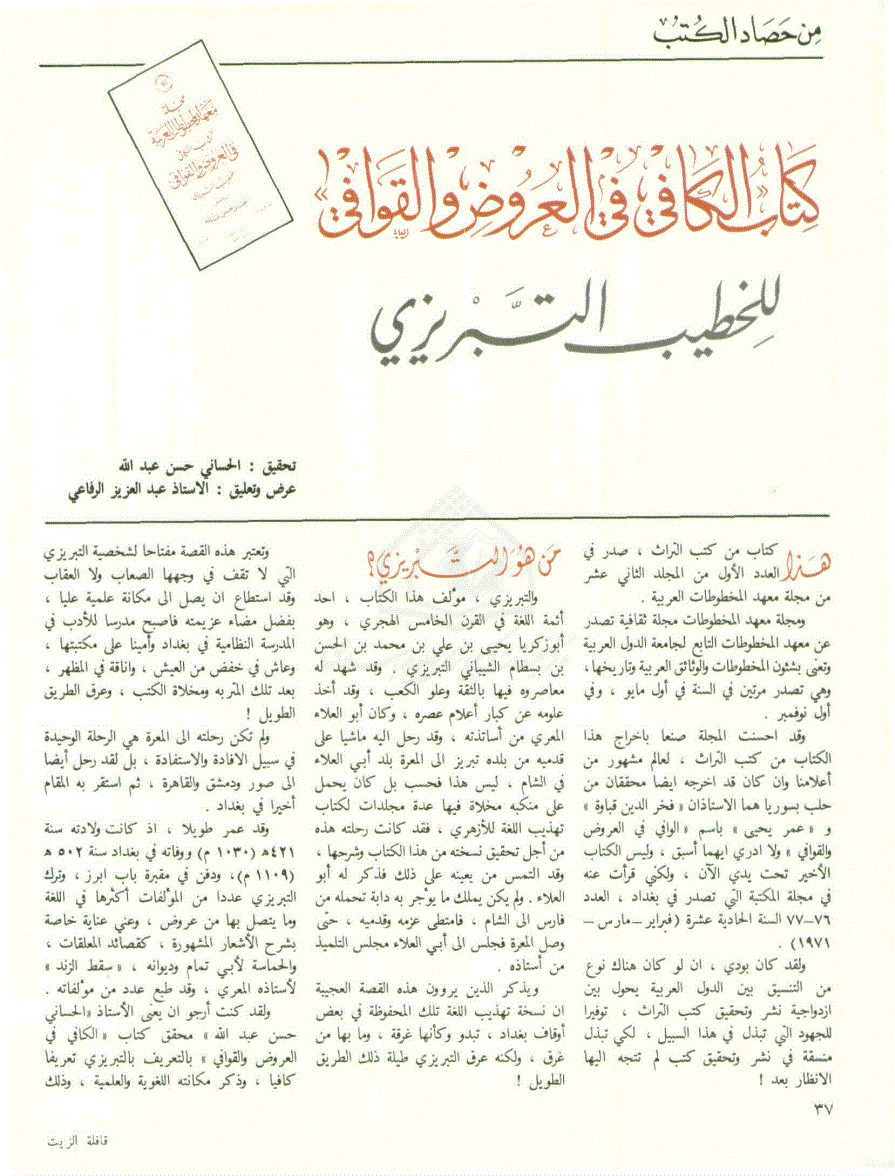 من حصاد الكتب
مجلة
معهد المخطوطات العربية
كتاب الكافي
في العروض والقوافي
كتاب «الكافي في العروض والقوافي»
للخطيب التبريزي
تحقيق : الحساني حسن عبد الله
عرض وتعليق : الاستاذ عبد العزيز الرفاعي
هذا كتاب من كتب التراث ، صدر في
العدد الأول من المجلد الثاني عشر
من مجلة معهد المخطوطات العربية .
ومجلة معهد المخطوطات مجلة ثقافية تصدر
عن معهد المخطوطات التابع لجامعة الدول العربية
وتعنى بشئون المخطوطات والوثائق العربية وتاريخها ،
وهي تصدر مرتين في السنة في أول مايو ، وفي
أول نوفمبر .
وقد احسنت المجلة صنعا باخراج هذا
الكتاب من كتب التراث ، لعالم مشهور من
أعلامنا وان كان قد اخرجه ايضا محققان من
حلب بسوريا هما الاستاذان « فخر الدين قباوة »
و « عمر يحيى » باسم « الوافي في العروض
والقوافي » ولا ادري ايهما أسبق ، وليس الكتاب
الأخير تحت يدي الآن ، ولكني قرأت عنه
في مجلة المكتبة التي تصدر في بغداد ، العدد
٧٦–٧٧ السنة الحادية عشرة (فبراير – مارس –
١٩٧١) .
ولقد كان بودي ، ان لو كان هناك نوع
من التنسيق بين الدول العربية يحول بين
ازدواجية نشر وتحقيق كتب التراث ، توفيرا
للجهود التي تبذل في هذا السبيل ، لكي تبذل
منسقة في نشر وتحقيق كتب لم تتجه اليها
الانظار بعد !
من هو التبريزي؟
والتبريزي ، مؤلف هذا الكتاب ، احد
أئمة اللغة في القرن الخامس الهجري ، وهو
أبو زكريا يحيى بن علي بن محمد بن الحسن
بن بسطام الشيباني التبريزي . وقد شهد له
معاصروه فيها بالثقة وعلو الكعب ، وقد أخذ
علومه عن كبار أعلام عصره ، وكان أبو العلاء
المعري من أساتذته ، وقد رحل اليه ماشيا على
قدميه من بلده تبريز الى المعرة بلد أبي العلاء
في الشام ، ليس هذا فحسب بل كان يحمل
على منكبه مخلاة فيها عدة مجلدات لكتاب
تهذيب اللغة للأزهري ، فقد كانت رحلته هذه
من أجل تحقيق نسخته من هذا الكتاب وشرحها ،
وقد التمس من يعينه على ذلك فذكر له أبو
العلاء . ولم يكن يملك ما يؤجر به دابة تحمله من
فارس الى الشام ، فامتطى عزمه وقدميه ، حتى
وصل المعرة فجلس الى أبي العلاء مجلس التلميذ
من أستاذه .
ويذكر الذين يروون هذه القصة العجيبة
ان نسخة تهذيب اللغة تلك المحفوظة في بعض
أوقاف بغداد ، تبدو وكأنها غرقة ، وما بها من
غرق ، ولكنه عرق التبريزي طيلة ذلك الطريق
الطويل !
وتعتبر هذه القصة مفتاحا لشخصية التبريزي
التي لا تقف في وجهها الصعاب ولا العقاب
وقد استطاع ان يصل الى مكانة علمية عليا ،
بفضل مضاء عزيمته فاصبح مدرسا للأدب في
المدرسة النظامية في بغداد وأمينا على مكتبتها ،
وعاش في خفض من العيش ، واناقة في المظهر ،
بعد تلك المتربه ومخلاة الكتب ، وعرق الطريق
الطويل !
ولم تكن رحلته الى المعرة هي الرحلة الوحيدة
في سبيل الافادة والاستفادة ، بل لقد رحل أيضا
الى صور ودمشق والقاهرة ، ثم استقر به المقام
أخيرا في بغداد .
وقد عمر طويلا ، اذ كانت ولادته سنة
٤٢١ه (١٠٣٠ م) ووفاته في بغداد سنة ٥٠٢ ه
(١١٠٩ م) ، ودفن في مقبرة باب ابرز ، وترك
التبريزي عددا من المؤلفات أكثرها في اللغة
وما يتصل بها من عروض ، وعني عناية خاصة
بشرح الأشعار المشهورة ، كقصائد المعلقات ،
والحماسة لأبي تمام وديوانه ، « سقط الزند »
لأستاذه المعري ، وقد طبع عدد من مؤلفاته .
ولقد كنت أرجو ان يعنى الأستاذ « الحساني
حسن عبد الله » محقق كتاب « الكافي في
العروض والقوافي » بالتعريف بالتبريزي تعريفا
كافيا ، وذكر مكانته اللغوية والعلمية ، وذلك
٣٧
قافلة الزيت